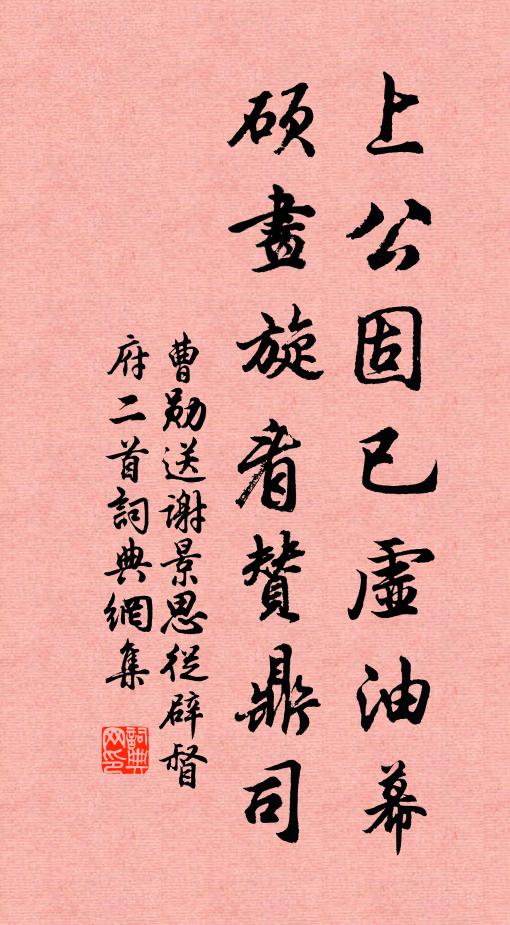 上公固已虛油幕
碩畫旋看贊鼎司
曹勛送謝景思從辟督
府二首詞典網集
詞典網印